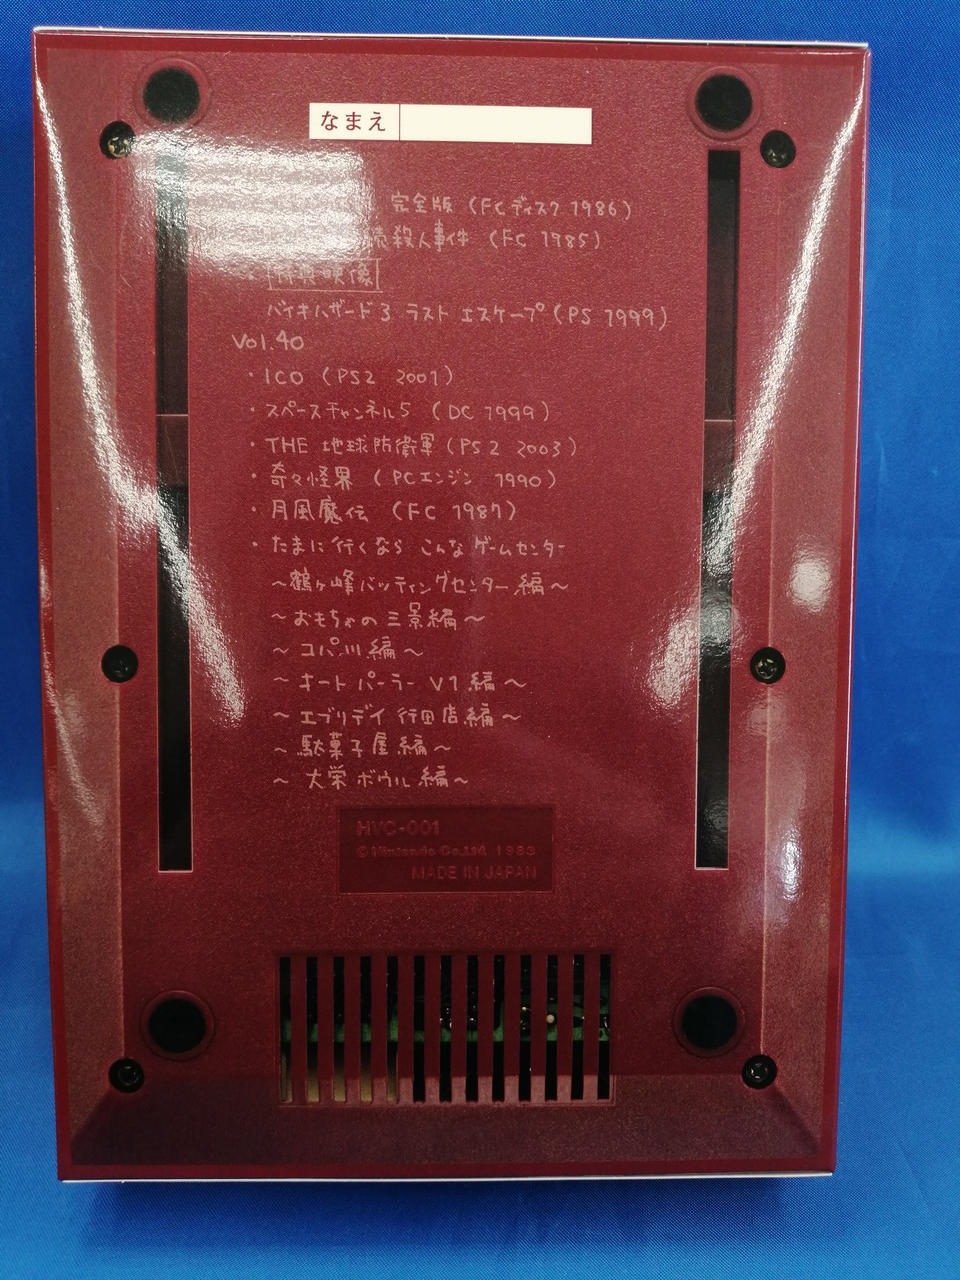 なまえ
完全版（FCディスク 1986）
続殺人事件（FC 1985）
特典映像
バイオハザード3 ラストエスケープ（PS 1999）
Vol.40
・ICO（PS2 2001）
・スペースチャンネル5（DC 1999）
・THE 地球防衛軍（PS2 2003）
・奇々怪界（PCエンジン 1990）
・月風魔伝（FC 1987）
・たまに行くなら こんなゲームセンター
～鶴ヶ峰バッティングセンター編～
～おもちゃの三景編～
～コパ川編～
～オートパーラーV1編～
～エブリデイ行田店編～
～駄菓子屋編～
～大栄ボウル編～
HVC-001
© Nintendo Co.,Ltd. 1983
MADE IN JAPAN